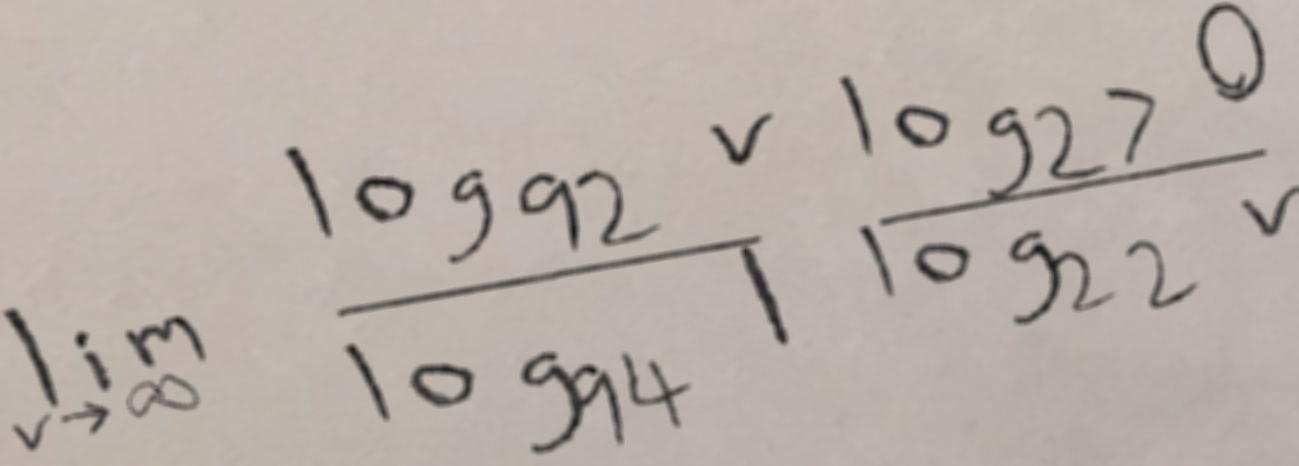 \lim_{v \to \infty} \frac{\log_{92} v}{\log_{94} 1} \frac{\log_{27} 0}{\log_{22} v}